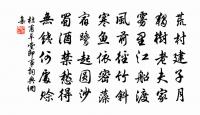 荒村建子月
獨樹老夫家
霧里江船渡
風前徑竹斜
寒魚依密藻
宿鷺起圓沙
蜀酒禁愁得
無錢何處賒
杜甫草堂即事詞典網
集